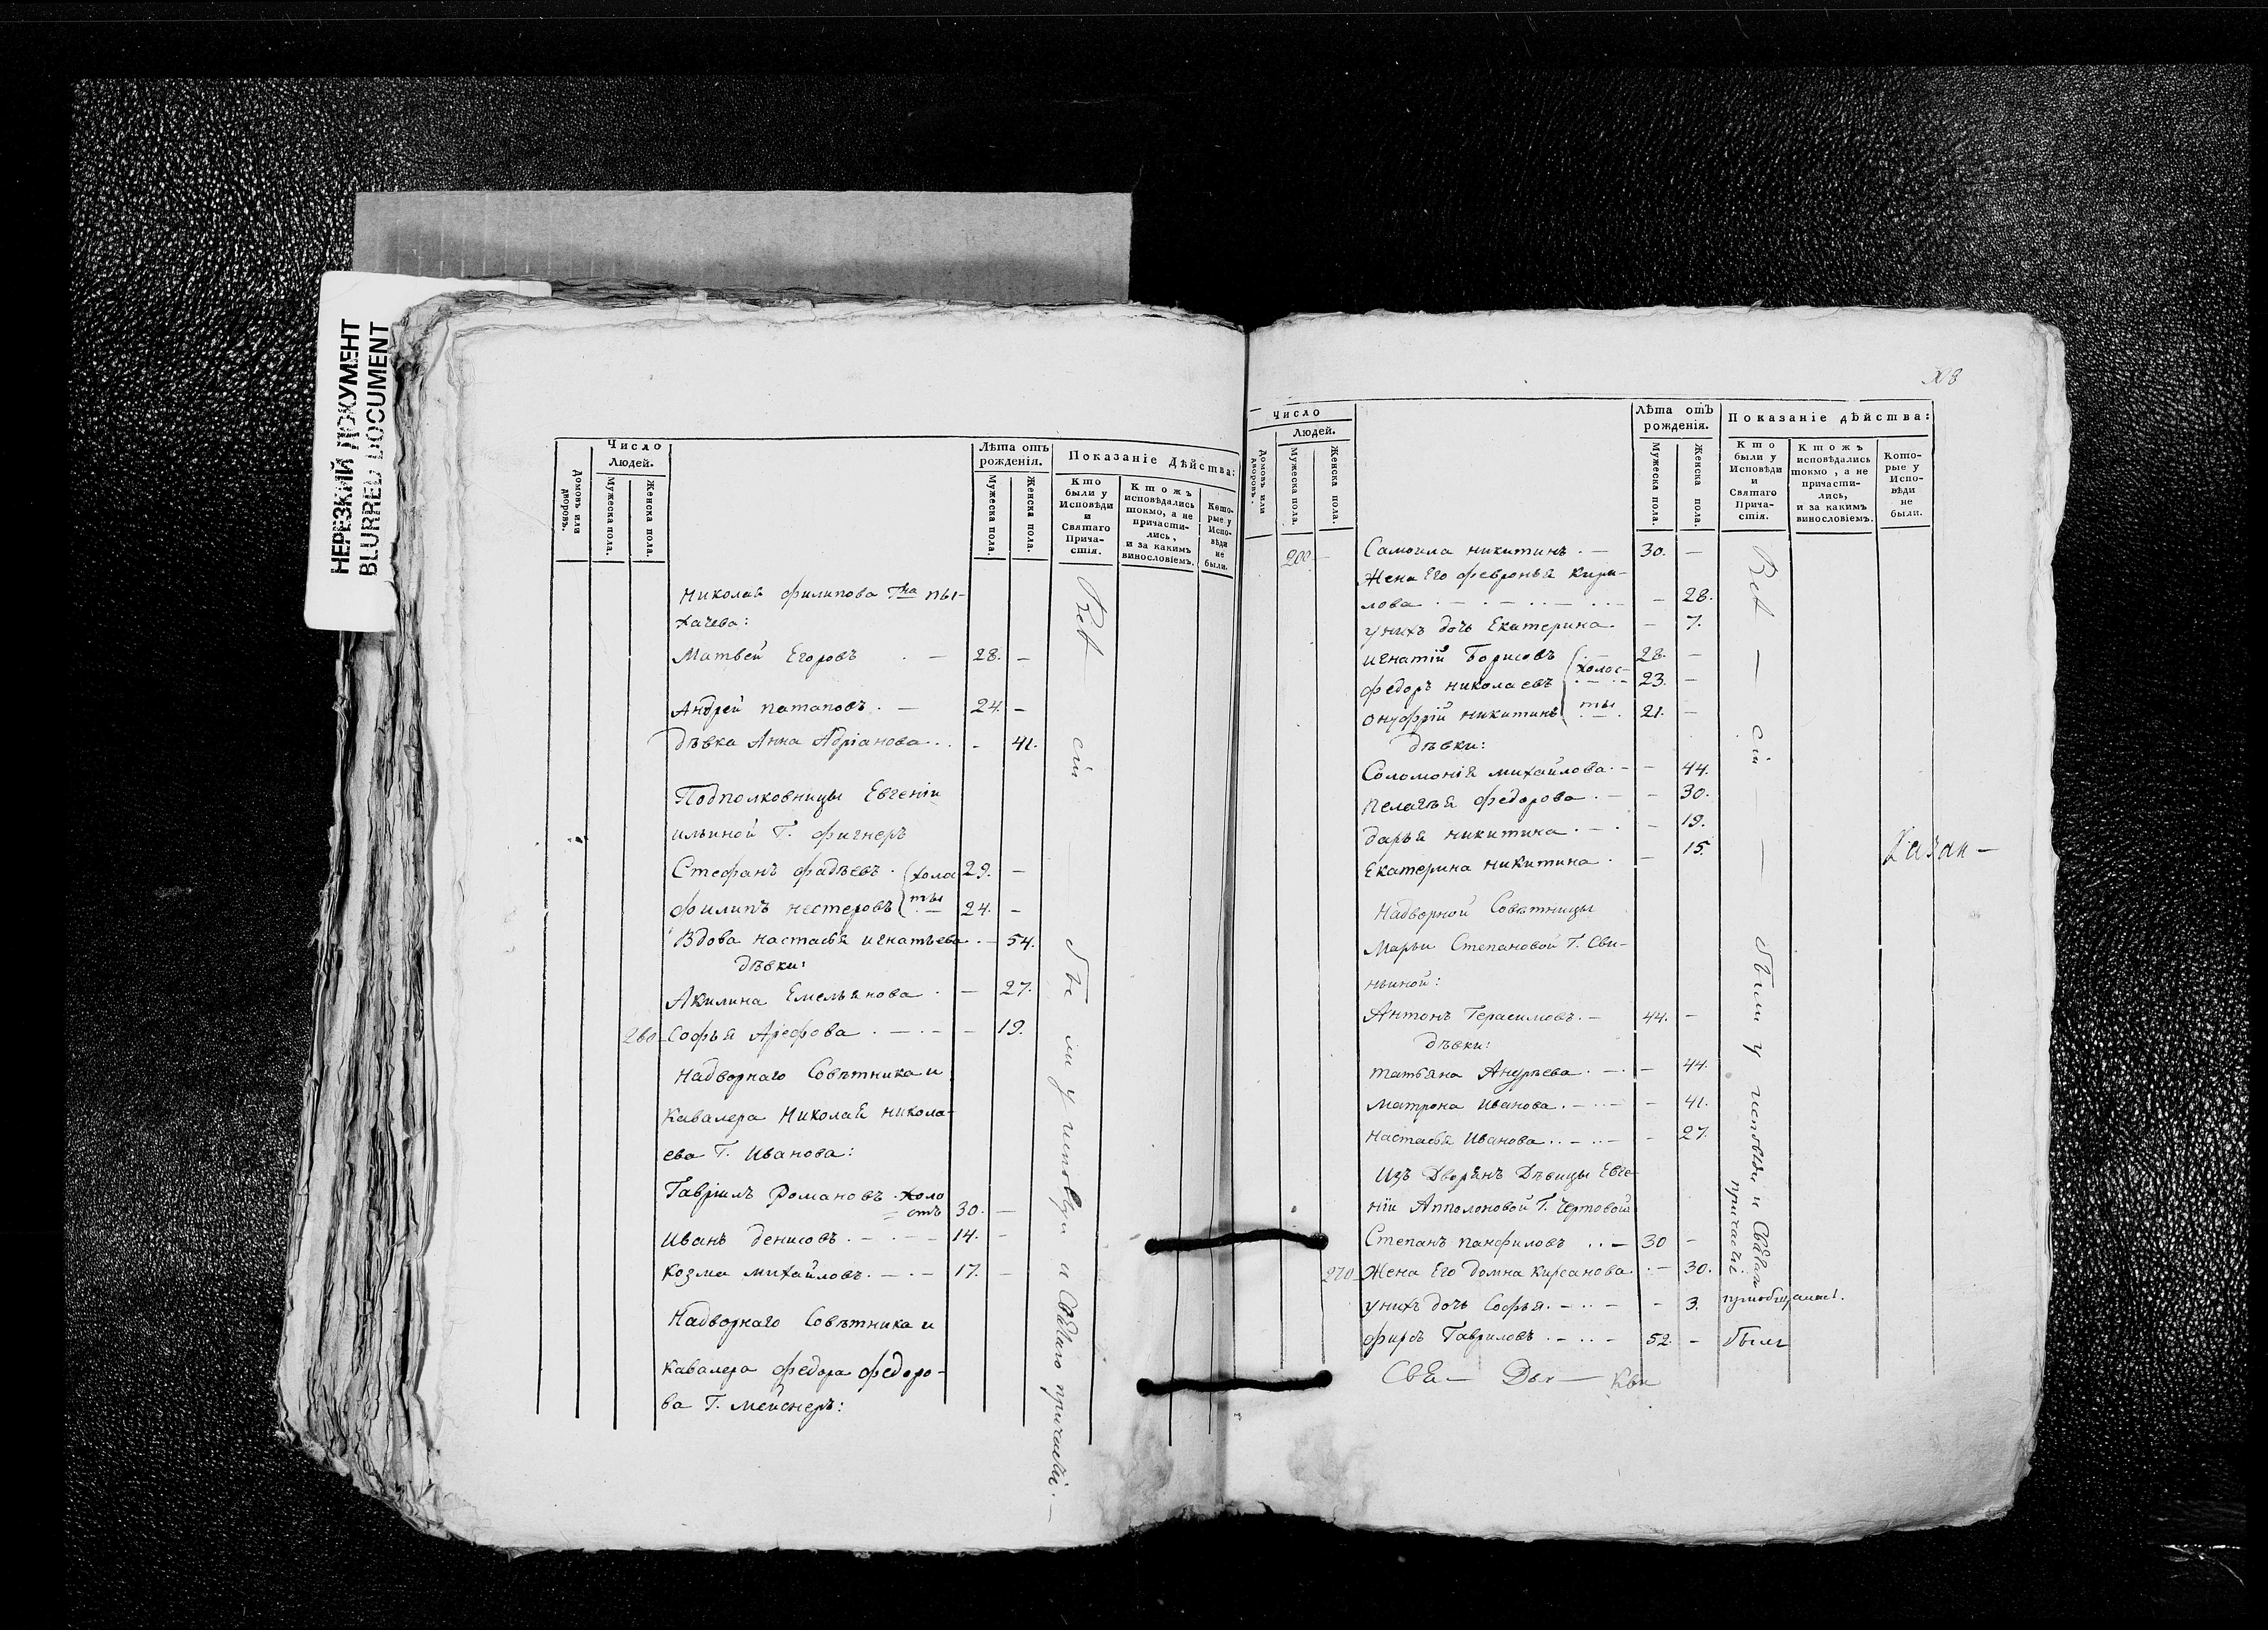 НЕРЕЗКИЙ ДОКУМЕНТ
BLURRED DOCUMENT
Число
Людей.
Домовъ или дворовъ.
Мужеска пола.
Женска пола.
Лѣта отъ рожденія.
Мужеска пола.
Женска пола.
Показаніе Дѣйства:
Кто были у Исповѣди и Святаго Прича-стія.
Ктожъ исповѣдались токмо, а не причасти-лись, и за какимъ винословіемъ.
Кото-рые у Испо-вѣди не были.
Николая Филипова Гна Пы-
хачева:
Матвей Егоровъ . — 28. —
Андрей Патаповъ . — 24. —
Дѣвка Анна Адріанова . . - 41.
Подполковницы Евгеніи
Ильиной Г. Фигнеръ
Стефанъ Фадѣевъ . (холо 29. —
Филипъ Нестеровъ (сты 24. —
Вдова Настасья Игнатьева . — 54.
Дѣвки:
Акилина Емельянова . — 27.
260 Софья Арефова . — . — — 19.
Надворнаго Совѣтника и
Кавалера Николая Никола-
ева Г. Иванова:
Гавріилъ Романовъ . холо
стъ 30. —
Иванъ Денисовъ . — . — — 14. —
Козма Михайловъ . — . — 17. —
Надворнаго Совѣтника и
Кавалера Федора Федоро-
ва Г. Мейснеръ:
Всѣ — сіи — были у исповѣди и Святаго причастія. —
Число
Людей.
Домовъ или дворовъ.
Мужеска пола.
Женска пола.
Лѣта отъ рожденія.
Мужеска пола.
Женска пола.
Показаніе дѣйства:
Кто были у Исповѣди и Святаго Прича-стія.
Ктожъ исповѣдались токмо, а не причасти-лись, и за какимъ винословіемъ.
Кото-рые у Испо-вѣди не были.
200 Самоила Никитинъ . — 30. —
Жена Его Февронья Кири-
лова . — . — . . — . . . — 28.
У нихъ дочь Екатерина. — 7.
Игнатій Борисовъ (холос- 28. —
Федоръ Николаевъ 23. —
Онуфрій Никитинъ ( ты 21. —
Дѣвки:
Соломонія Михайлова . — — 44.
Пелагья Федорова . — — 30.
Дарья Никитина . — . — 19.
Екатерина Никитина . — 15.
Надворной Совѣтницы
Марьи Степановой Г. Сви-
ньиной:
Антонъ Герасимовъ . — 44. —
Дѣвки:
Татьяна Андрѣева . — . — 44.
Матрона Иванова . — . . — — 41.
Настасья Иванова . . — . . — — 27.
Изъ Дворянъ Дѣвицы Евге-
ніи Апполоновой Г. Чертовой
Степанъ Панфиловъ . . — 30 —
270 Жена Его Домна Кирсанова . — 30.
У нихъ дочь Софья . — . . — — 3. приобщалась.
Фирсъ Гавриловъ . — . . — 52. — былъ
Всѣ — сіи — были у исповѣди и Святаго причастія
Казан —